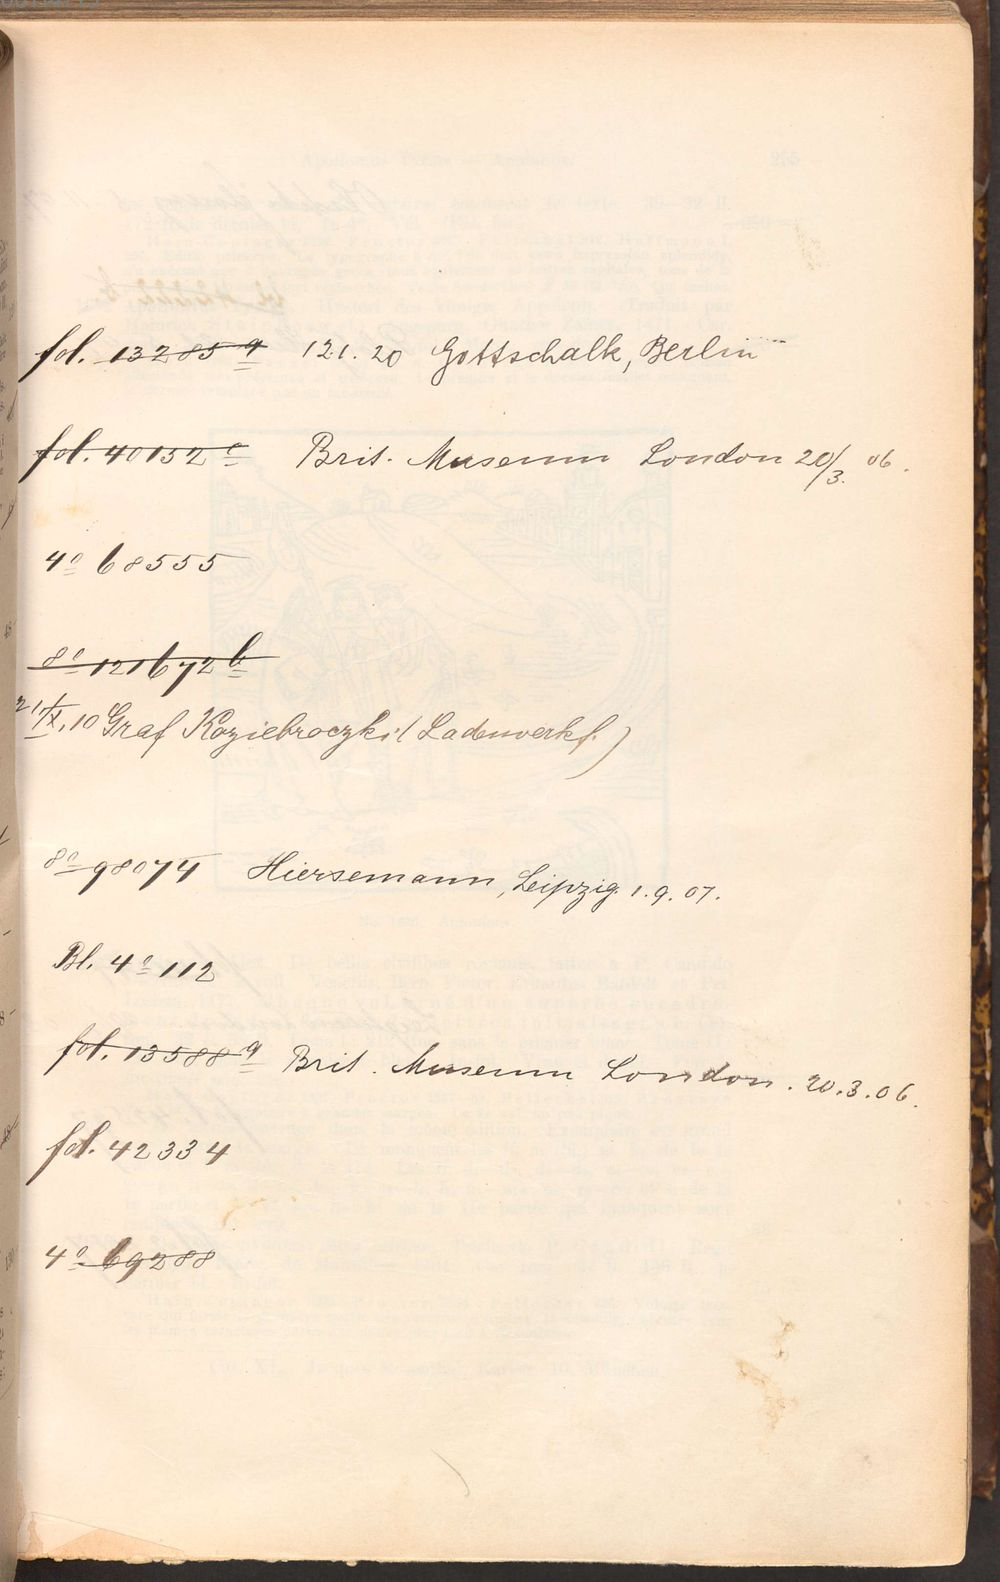 fol. 13285 a 12.1.20 Gottschalk, Berlin
fol. 40152 c Brit. Museum London 20/3. 06.
4° 68555
8° 121672 b
21/IX.10 Graf Koziebroczki (Ladenverkf.)
8° 98074 Hiersemann, Leipzig 1.9.07.
Bl. 4° 112
fol. 13588 a Brit. Museum London. 20.3.06.
fol. 42334
4° 69288